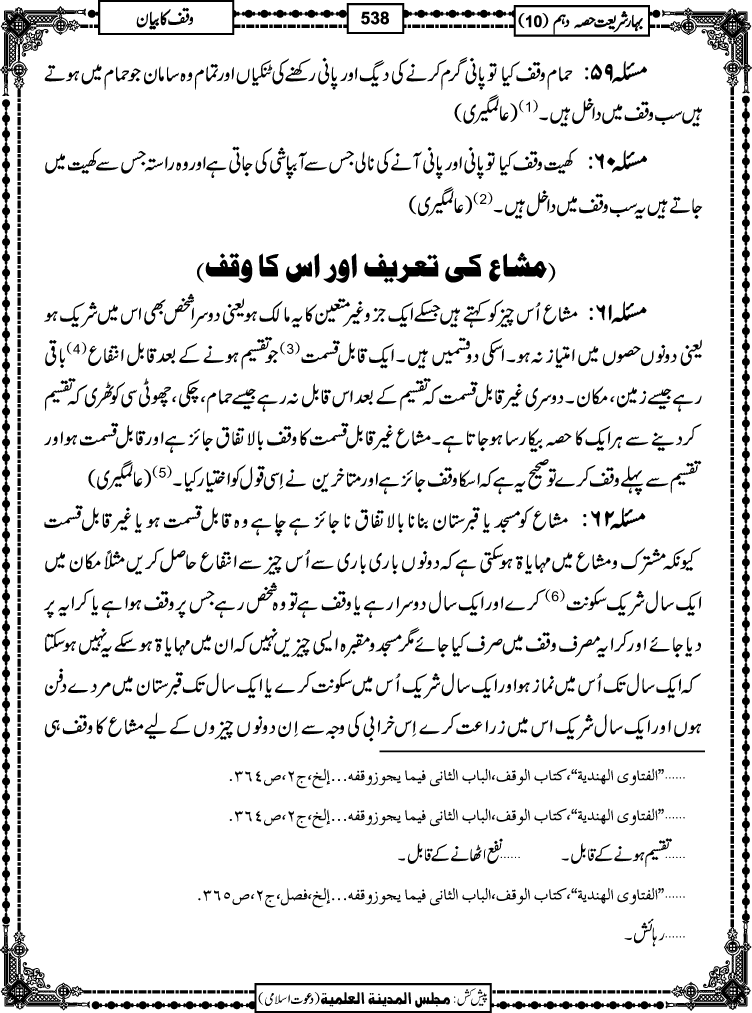 بہار شریعت حصہ دہم (10)
538
وقف کا بیان
مسئلہ ۵۹: حمام وقف کیا تو پانی گرم کرنے کی دیگ اور پانی رکھنے کی ٹنکیاں اور تمام وہ سامان جو حمام میں ہوتے
ہیں سب وقف میں داخل ہیں۔(1) (عالمگیری)
مسئلہ ۶۰: کھیت وقف کیا تو پانی اور پانی آنے کی نالی جس سے آبپاشی کی جاتی ہے اور وہ راستہ جس سے کھیت میں
جاتے ہیں یہ سب وقف میں داخل ہیں۔(2) (عالمگیری)
(مشاع کی تعریف اور اس کا وقف)
مسئلہ ۶۱: مشاع اُس چیز کو کہتے ہیں جسکے ایک جزو غیر متعین کا یہ مالک ہو یعنی دوسرا شخص بھی اس میں شریک ہو
یعنی دونوں حصوں میں امتیاز نہ ہو۔ اسکی دو قسمیں ہیں۔ ایک قابل قسمت(3) جو تقسیم ہونے کے بعد قابل انتفاع(4) باقی
رہے جیسے زمین، مکان۔ دوسری غیر قابل قسمت کہ تقسیم کے بعد اس قابل نہ رہے جیسے حمام، چکی، چھوٹی سی کوٹھری کہ تقسیم
کردینے سے ہر ایک کا حصہ بیکار سا ہو جاتا ہے۔ مشاع غیر قابل قسمت کا وقف بالاتفاق جائز ہے اور قابل قسمت ہو اور
تقسیم سے پہلے وقف کرے تو صحیح یہ ہے کہ اسکا وقف جائز ہے اور متاخرین نے اِسی قول کو اختیار کیا۔(5) (عالمگیری)
مسئلہ ۶۲: مشاع کو مسجد یا قبرستان بنانا بالاتفاق ناجائز ہے چاہے وہ قابل قسمت ہو یا غیر قابل قسمت
کیونکہ مشترک و مشاع میں مہایاۃ ہو سکتی ہے کہ دونوں باری باری سے اُس چیز سے انتفاع حاصل کریں مثلاً مکان میں
ایک سال شریک سکونت(6) کرے اور ایک سال دوسرا رہے یا وقف ہے تو وہ شخص رہے جس پر وقف ہوا ہے یا کرایہ پر
دیا جائے اور کرایہ مصرف وقف میں صرف کیا جائے مگر مسجد و مقبرہ ایسی چیزیں نہیں کہ ان میں مہایاۃ ہو سکے یہ نہیں ہو سکتا
کہ ایک سال تک اُس میں نماز ہو اور ایک سال شریک اُس میں سکونت کرے یا ایک سال تک قبرستان میں مردے دفن
ہوں اور ایک سال شریک اس میں زراعت کرے اِس خرابی کی وجہ سے اِن دونوں چیزوں کے لیے مشاع کا وقف ہی
......"الفتاوی الهندية"، كتاب الوقف، الباب الثانی فیما یجوز وقفه...إلخ، ج٢، ص٣٦٤.
......"الفتاوی الهندية"، كتاب الوقف، الباب الثانی فیما یجوز وقفه...إلخ، ج٢، ص٣٦٤.
......تقسیم ہونے کے قابل۔ ......نفع اٹھانے کے قابل۔
......"الفتاوی الهندية"، كتاب الوقف، الباب الثانی فیما یجوز وقفه...إلخ، فصل، ج٢، ص٣٦٥.
......رہائش۔
پیش کش: مجلس المدینۃ العلمیۃ (دعوت اسلامی)